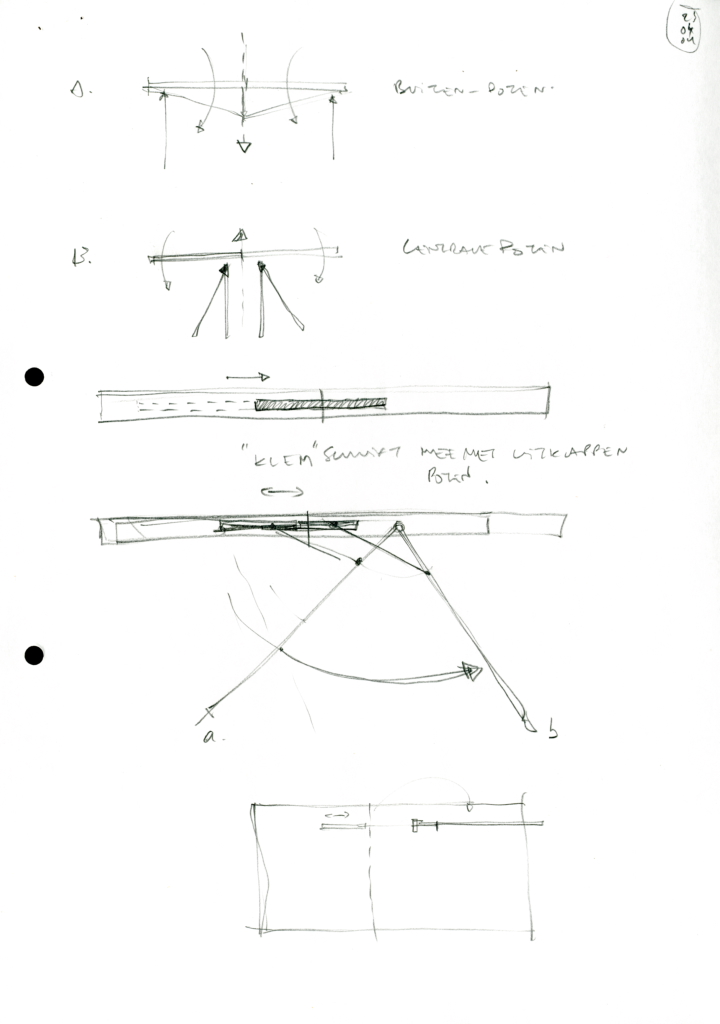 25
04
01
A. BUITEN-POTEN.
B. CENTRALE POTEN
"KLEM" SCHUIFT MEE MET UITKLAPPEN
POTEN.
a. b